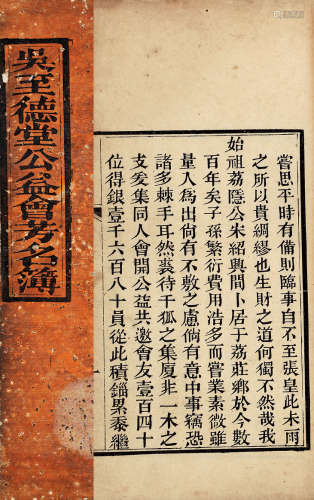 吳至德堂公益會芳名簿
嘗思平時有備則臨事自不至張皇此未雨
之所以貴綢繆也生財之道何獨不然哉我
始祖荔隱公宋紹興間卜居于荔莊鄉於今數
百年矣子孫繁衍費用浩多而嘗業微雖
量人為出尙有不敷之慮倘有意中事竊恐
諸多棘手耳然裘待千狐之集厦非一木之
支爰集同人會開公益共邀會友壹百四十
位得銀壹千六百八十員從此積錙累泰繼